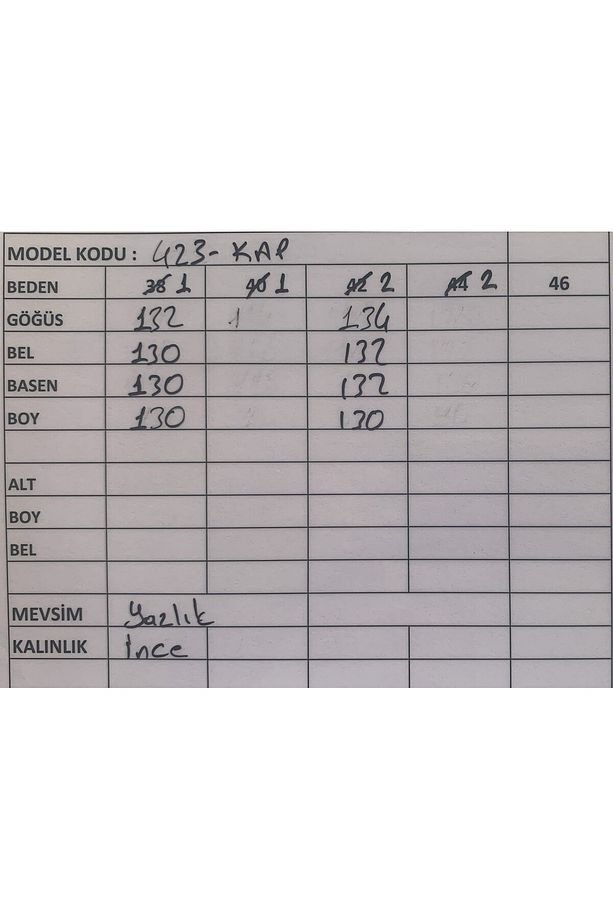 MODEL KODU : 423-KAP
BEDEN 38 1 40 1 42 2 44 2 46
GÖĞÜS 132 1 134
BEL 130 132
BASEN 130 132
BOY 130 130
ALT
BOY
BEL
MEVSİM Yazlık
KALINLIK İnce